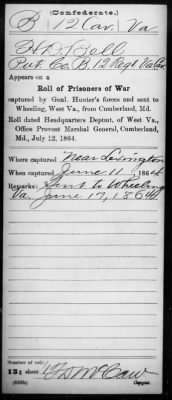 (Confederate.)
B 12 Cav. Va
H. Bell
Pvt. Co. B, 12 Regt Va Cav.
Appears on a
Roll of Prisoners of War
captured by Genl. Hunter's forces and sent to
Wheeling, West Va., from Cumberland, Md.
Roll dated Headquarters Deptnt. of West Va.,
Office Provost Marshal General, Cumberland,
Md., July 12, 1864.
Where captured Near Lexington
When captured June 11, 1864
Remarks: Sent to Wheeling
Va. June 17, 1864
Number of roll:
131 sheet
Copyist.